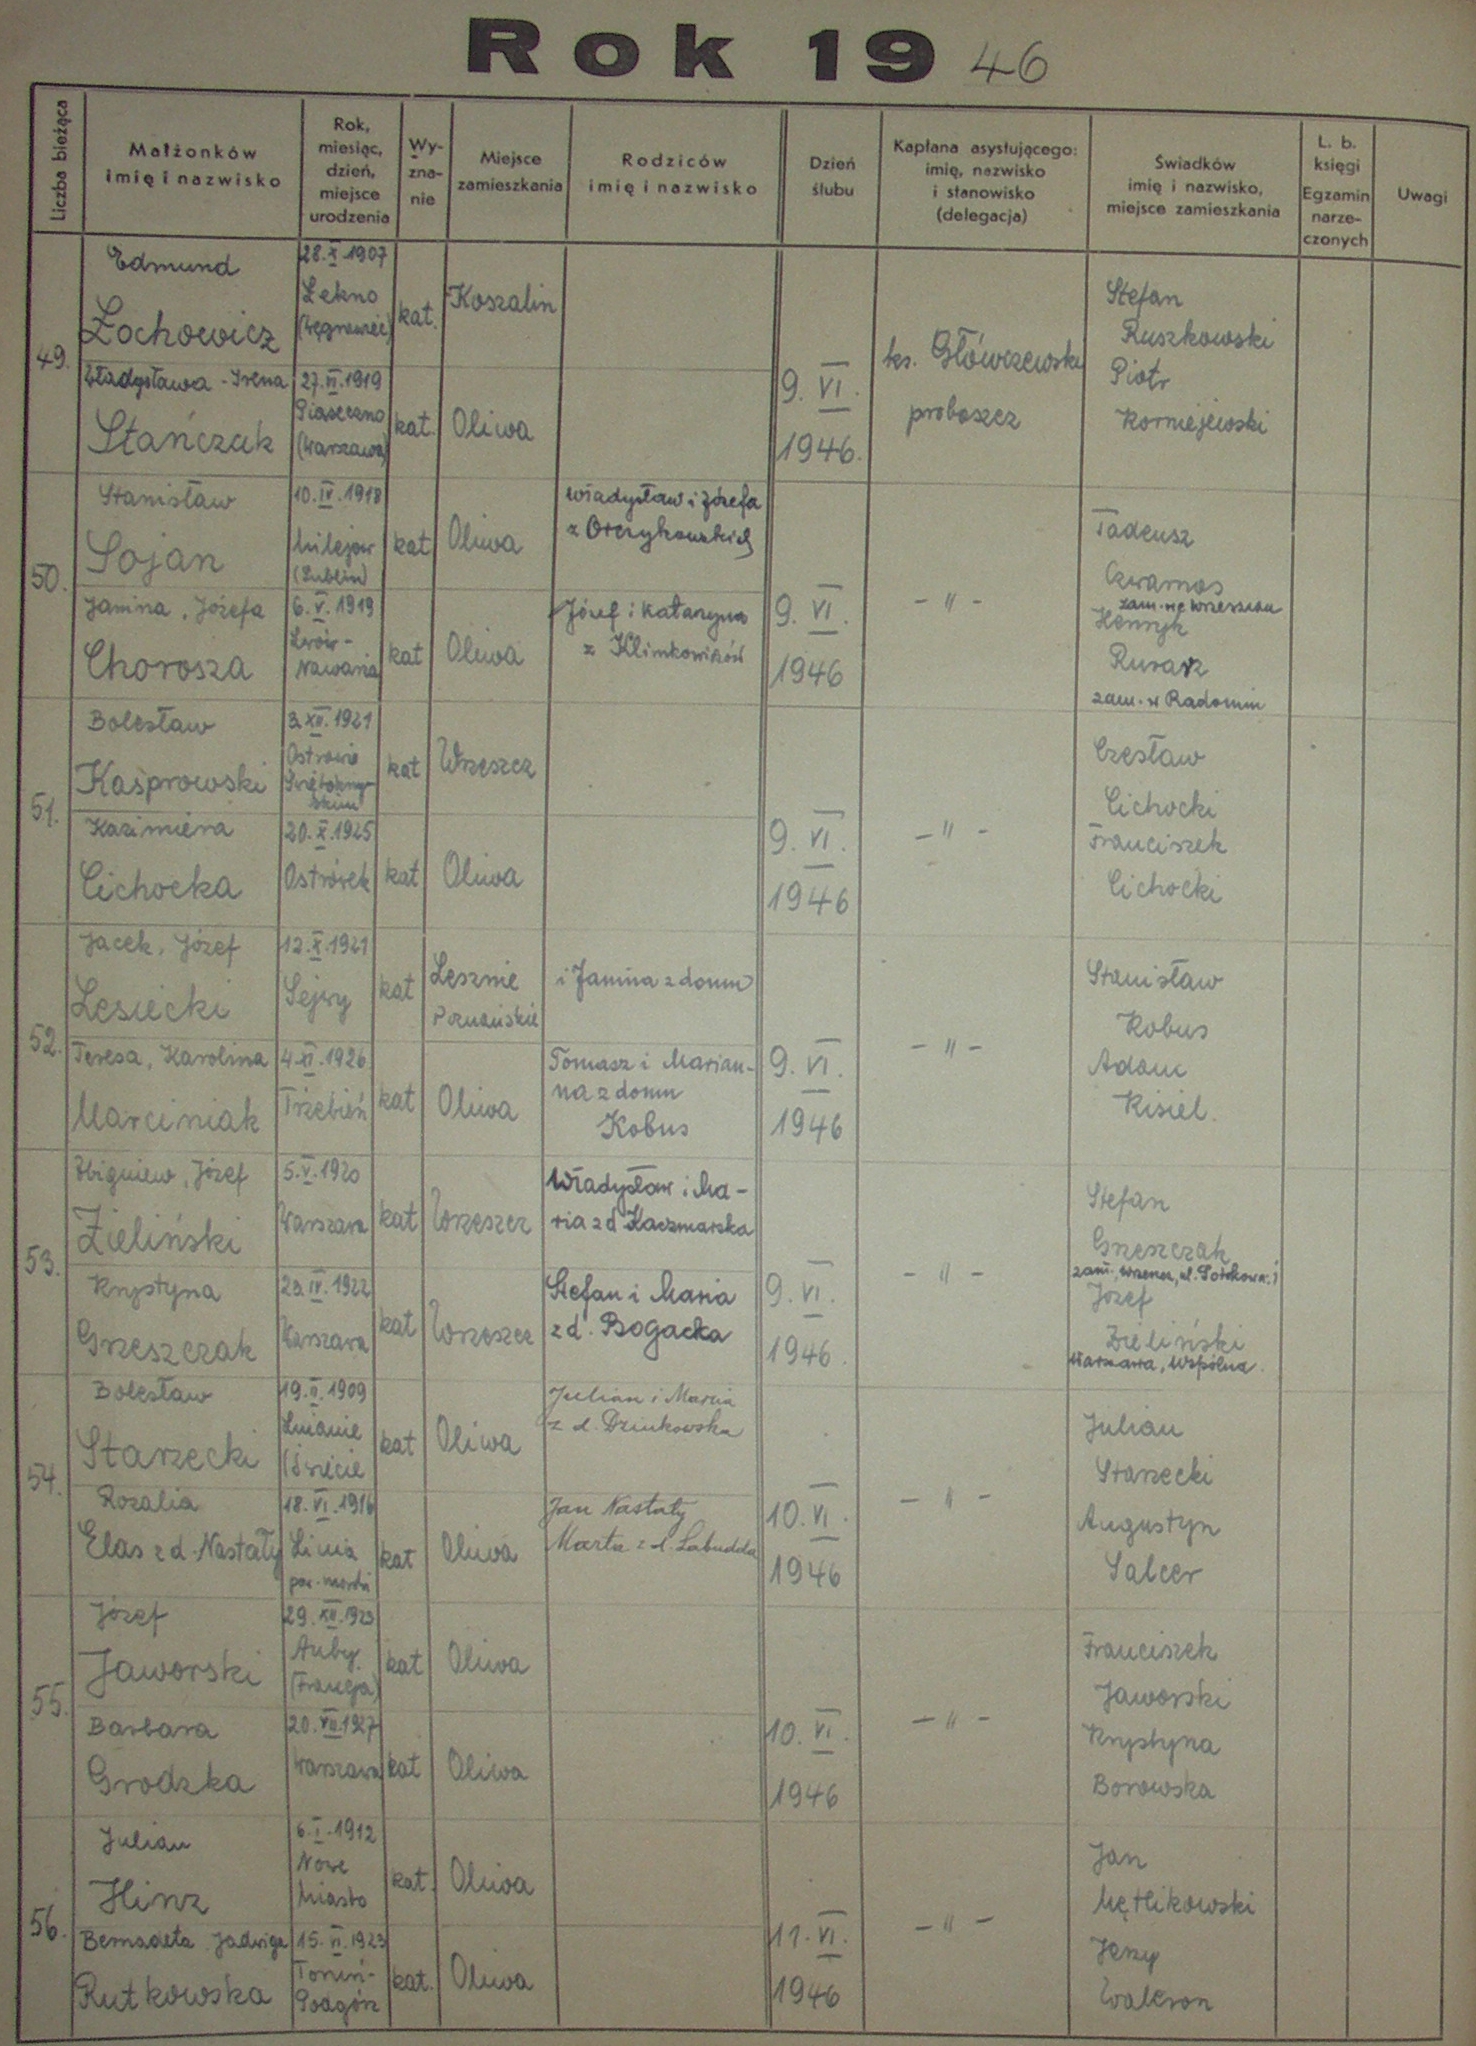 Rok 1946
Liczba bieżąca
Małżonków
imię i nazwisko
Rok,
miesiąc,
dzień,
miejsce
urodzenia
Wy-
zna-
nie
Miejsce
zamieszkania
Rodziców
imię i nazwisko
Dzień
ślubu
Kapłana asystującego:
imię, nazwisko
i stanowisko
(delegacja)
Świadków
imię i nazwisko,
miejsce zamieszkania
L. b.
księgi
Egzamin
narze-
czonych
Uwagi
49.
Edmund
Żochowicz
28.X.1907
Łekno
kat.
Koszalin
Władysława - Irena
Stańczak
27.VI.1919
Piaseczno
(Warszawa)
kat.
Oliwa
9. VI.
1946.
ks. Główczewski
proboszcz
Stefan
Ruszkowski
Piotr
Korniejewski
50.
Stanisław
Sojan
10.IV.1918
Milejow
(Lublin)
kat
Oliwa
Władysław i Józefa
z
Janina, Józefa
Chorosza
6.V.1919
Lwów-
Nawaria
kat
Oliwa
Józef i Katarzyna
z Klimkowiczów
9. VI.
1946
- " -
Tadeusz
Czwarnos
zam. we Wrzeszczu
Henryk
Rusarz
zam. w Radomiu
51.
Bolesław
Kasprowski
3.XII.1921
Ostrowie
Świętokrzy-
skim
kat
Wrzeszcz
Kazimiera
Cichocka
20.X.1925
Ostrówek
kat
Oliwa
9. VI.
1946
- " -
Czesław
Cichocki
Franciszek
Cichocki
52.
Jacek, Józef
Lesiecki
12.X.1921
Sejny
kat
Lesznie
Poznańskie
i Janina z domu
Teresa, Karolina
Marciniak
4.XI.1926
Trzebień
kat
Oliwa
Tomasz i Marian-
na z domu
Kobus
9. VI.
1946
- " -
Stanisław
Kobus
Adam
Kisiel.
53.
Zbigniew, Józef
Zieliński
5.V.1920
Warszawa
kat
Wrzeszcz
Władysław i Ma-
ria z d Kaczmarska
Krystyna
Grzeszczak
23.IV.1922
Warszawa
kat
Wrzeszcz
Stefan i Maria
z d. Bogacka
9. VI.
1946.
- " -
Stefan
Grzeszczak
zam. Wrzeszcz, ul.
Józef
Zieliński
Warszawa, Wspólna.
54.
Bolesław
Starzecki
19.II.1909
Lnianie
(Świecie
kat
Oliwa
Julian i Maria
z d. Dziukowska
Rozalia
Elas z d. Nastały
18.VI.1916
Linia
kat
Oliwa
Jan Nastały
Marta z d. Labudda
10. VI.
1946
- " -
Julian
Starzecki
Augustyn
Salcer
55.
Józef
Jaworski
29.XII.1923
Auby
(Francja)
kat
Oliwa
Barbara
Grodzka
20.VII.1927
Warszawa
kat
Oliwa
10. VI.
1946
- " -
Franciszek
Jaworski
Krystyna
Borowska
56.
Julian
Hinz
6.I.1912
Nowe
Miasto
kat.
Oliwa
Bernadeta Jadwiga
Rutkowska
15.VI.1923
Toruń-
Podgórz
kat.
Oliwa
11. VI.
1946
- " -
Jan
Mętlikowski
Jerzy
Waleron